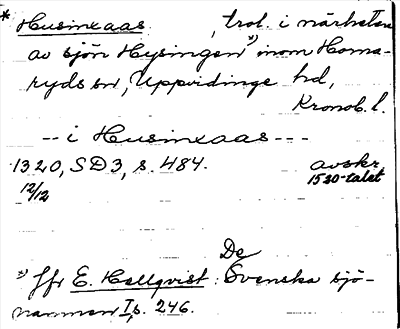 * Husinxaas, trol. i närheten
av sjön Hysingen ¹) inom Homa-
ryds sn, Uppvidinge hd,
Kronob. l.
-- i Husinxaas ---
1320, SD 3, s. 484. avskr.
12/12 1530-talet
¹) Jfr E. Hellqvist: De Svenska sjö-
namnen I, s. 246.